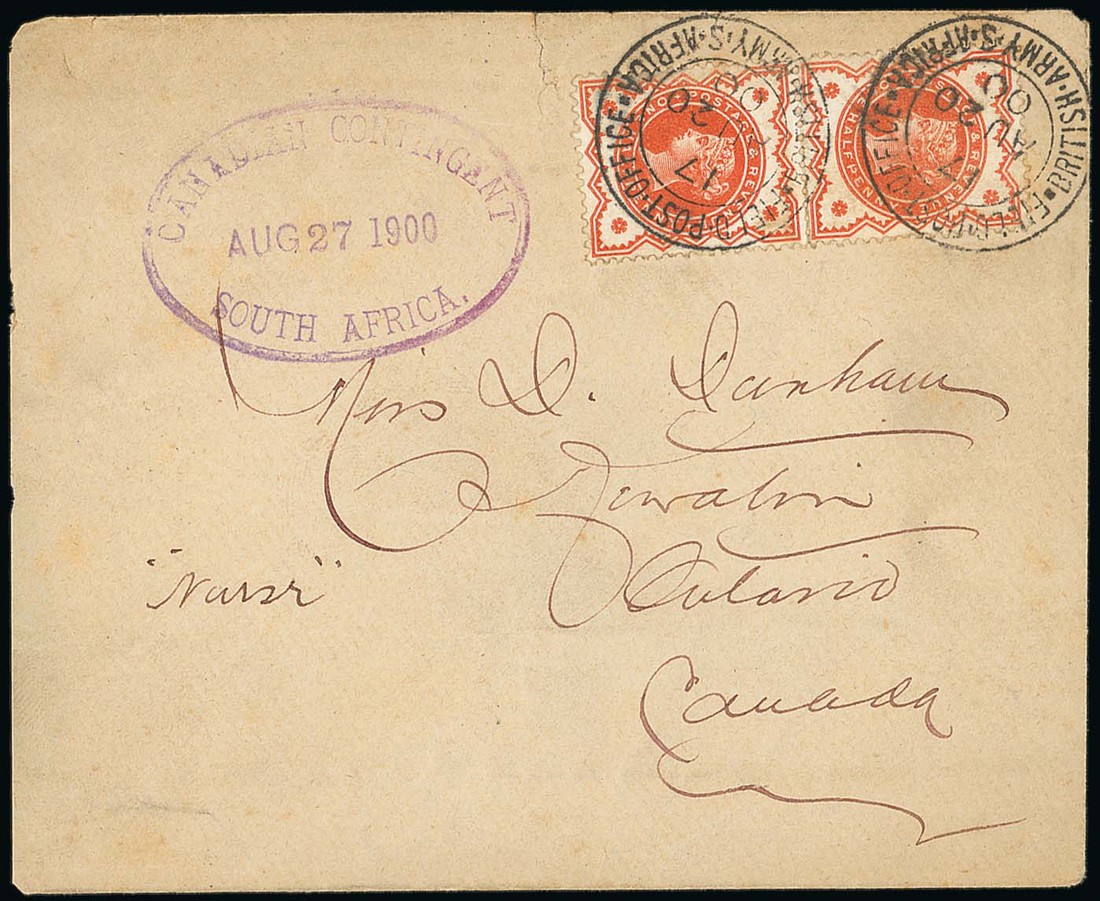 CANADIAN CONTINGENT
AUG 27 1900
SOUTH AFRICA.
FIELD·POST·OFFICE·BRITISH·ARMY·S·AFRICA
AU 20
00
FIELD·POST·OFFICE·BRITISH·ARMY·S·AFRICA
AU 20
00
POSTAGE & REVENUE
HALFPENNY
Miss D. Danham
Kewatin
Ontario
Canada
"Nurse"